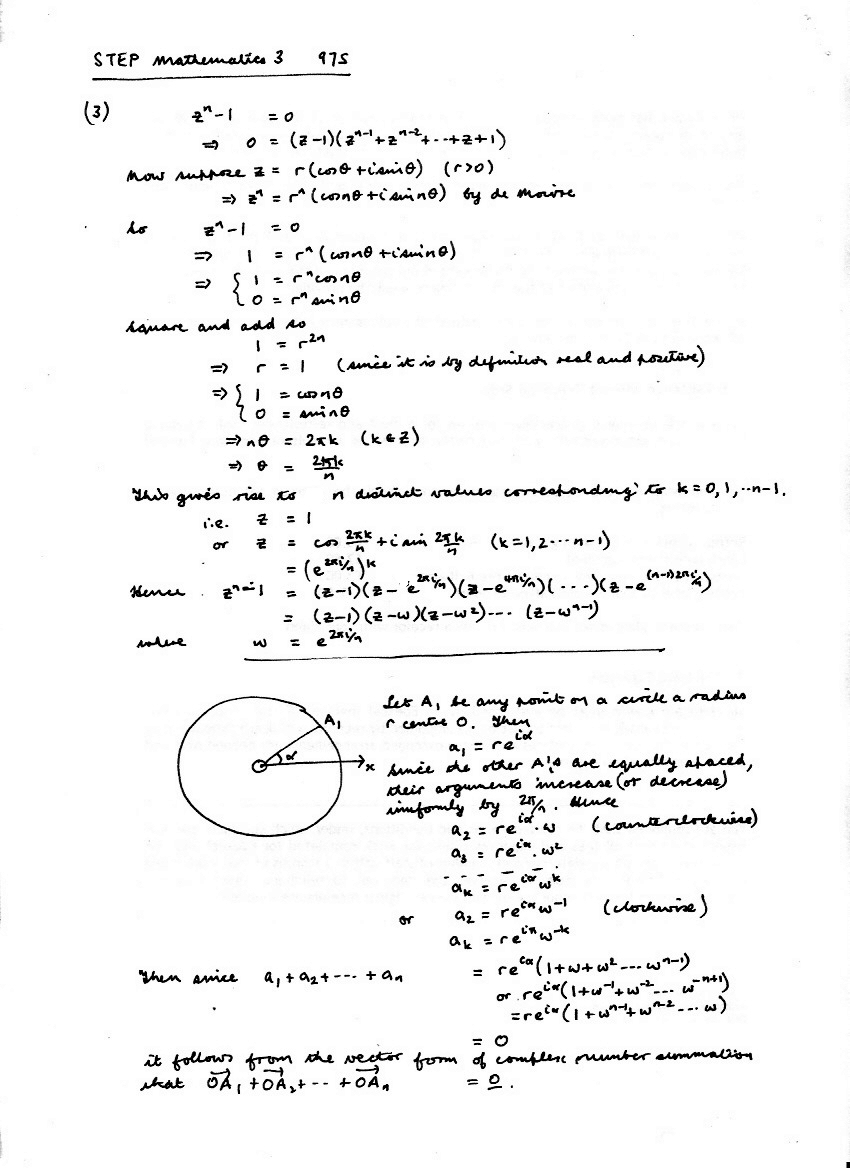 STEP Mathematics 3 97S
(3) zⁿ-1 = 0
⇒ 0 = (z-1)(zⁿ⁻¹+zⁿ⁻²+--+z+1)
Now suppose z = r(cosθ+isinθ) (r>0)
⇒ zⁿ = rⁿ(cosnθ+isinnθ) by de Moivre
So zⁿ-1 = 0
⇒ 1 = rⁿ(cosnθ+isinnθ)
⇒ { 1 = rⁿcosnθ
0 = rⁿsinnθ
Square and add so
1 = r²ⁿ
⇒ r = 1 (since it is by definition real and positive)
⇒ { 1 = cosnθ
0 = sinnθ
⇒ nθ = 2πk (k∈Z)
⇒ θ = 2πk/n
This gives rise to n distinct values corresponding to k=0,1,--n-1.
i.e. z = 1
or z = cos 2πk/n + i sin 2πk/n (k=1,2---n-1)
= (e^(2πi/n))^k
Hence zⁿ-1 = (z-1)(z-e^(2πi/n))(z-e^(4πi/n))(---)(z-e^((n-1)2πi/n))
= (z-1)(z-ω)(z-ω²)---- (z-ωⁿ⁻¹)
where ω = e^(2πi/n)
Let A₁ be any point on a circle a radius
r centre O. Then
a₁ = re^(iα)
Since the other A's are equally spaced,
their arguments increase (or decrease)
uniformly by 2π/n. Hence
a₂ = re^(iα).ω (counterclockwise)
a₃ = re^(iα).ω²
- - - - - -
a_k = re^(iα)ω^k
or a₂ = re^(iα)ω⁻¹ (clockwise)
a_k = re^(iα)ω^(-k)
A₁
α
x
Then since a₁+a₂+---+aₙ = re^(iα)(1+ω+ω²---ωⁿ⁻¹)
or re^(iα)(1+ω⁻¹+ω⁻²--- ω^(-n+1))
= re^(iα)(1+ωⁿ⁻¹+ωⁿ⁻²---ω)
= 0
it follows from the vector form of complex number summation
that OA₁+OA₂+--+OAₙ = 0.